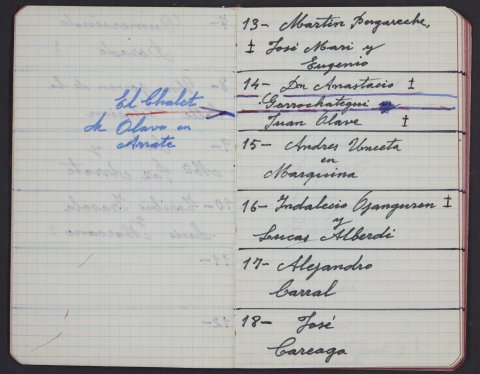 El Chalet
de Olave en
Arrate
13- Martin Pagareche,
‡ José Mari y
Eugenio
14- Dn Anastasio ‡
Gorrochategui
Juan Olave ‡
15- Andres Unceta
en
Marquina
16- Indalecio Ojanguren ‡
y
Lucas Alberdi
17- Alejandro
Carral
18- José
Careaga